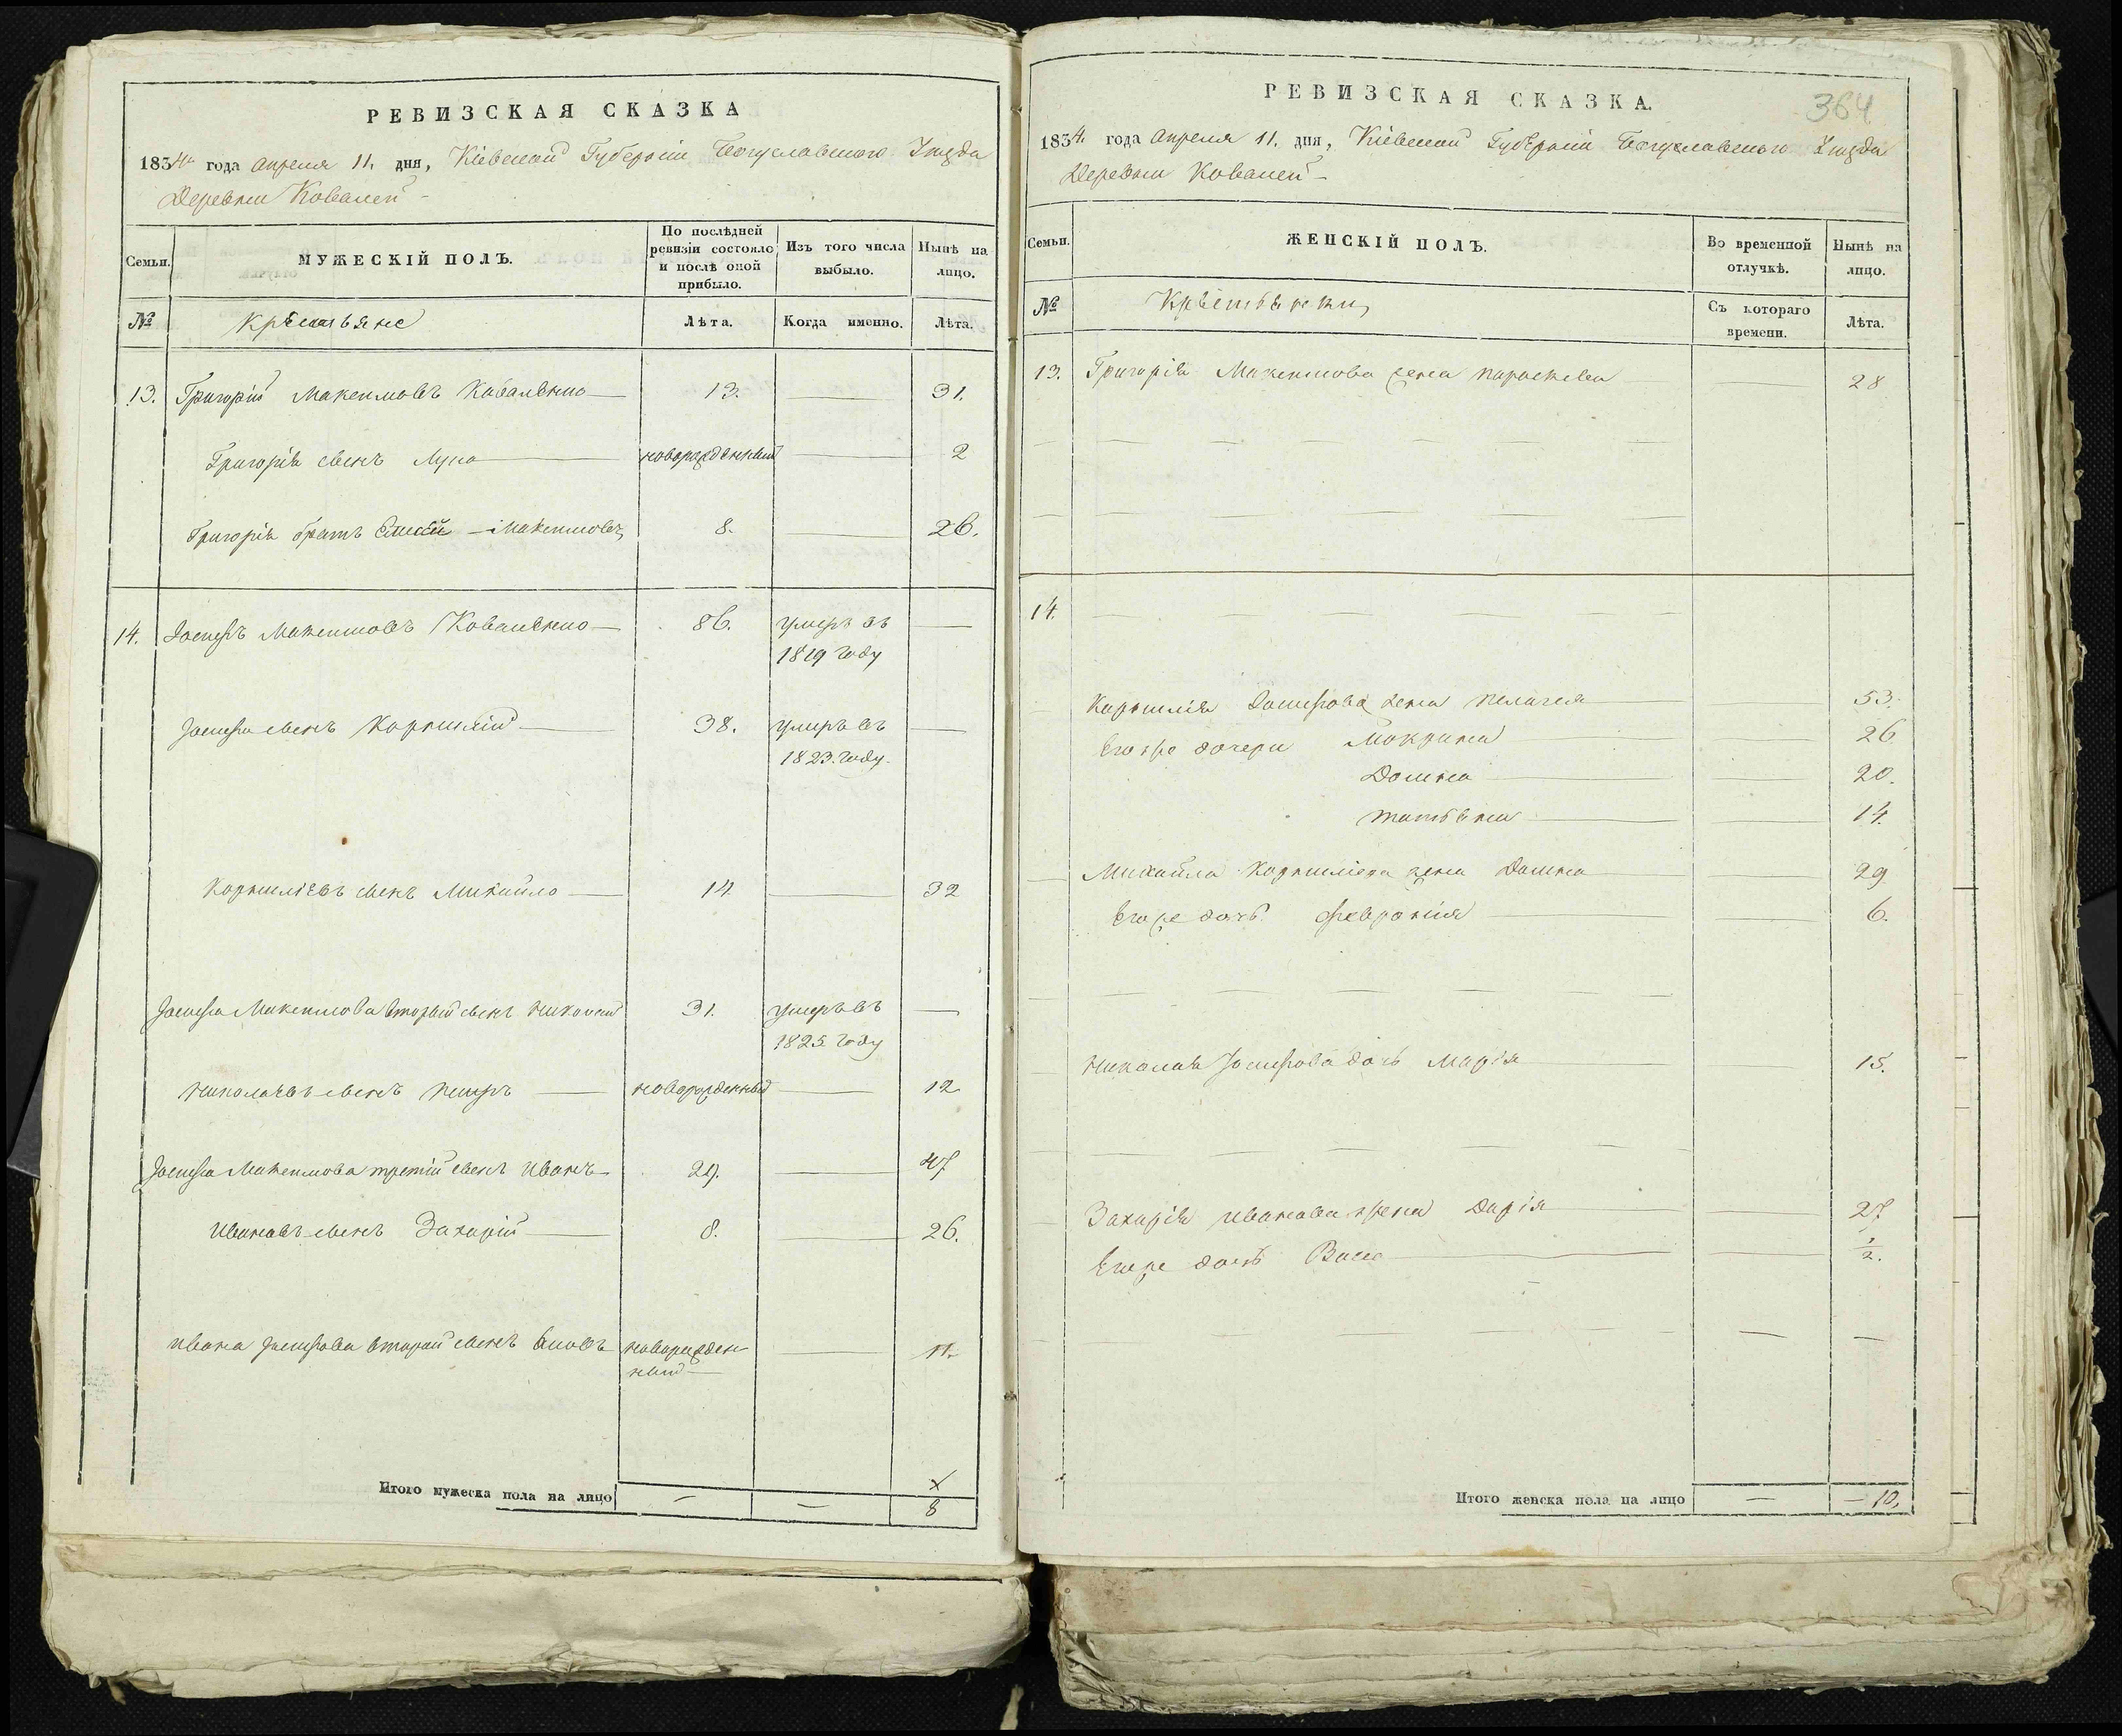 РЕВИЗСКАЯ СКАЗКА
1834 года Апреля 11. дня, Кіевской Губерніи Богуславского Уезда
Деревни Ковалей
Семьи.
МУЖЕСКІЙ ПОЛЪ.
По послѣдней ревизіи состояло и послѣ оной прибыло.
Изъ того числа выбыло.
Нынѣ на лицо.
№
Крестьяне
Лѣта.
Когда именно.
Лѣта.
13. Григорій Максимовъ Коваленко 13. 31.
Григорія сынъ Лука новорожденный 2
Григорія братъ Елисей Максимовъ 8. 26.
14. Іосифъ Максимовъ Коваленко 86. умеръ въ
1819 году
Іосифа сынъ Корнилій 38. умеръ въ
1823 году.
Корниліевъ сынъ Михайло 14 32
Іосифа Максимова вторый сынъ Николай 31. умеръ въ
1825 году
Николаевъ сынъ Петръ новорожденный 12
Іосифа Максимова третій сынъ Иванъ 29. 47
Ивановъ сынъ Захарій 8. 26.
Ивана Іосифова второй сынъ новорожден-
ный 11.
Итого мужеска пола на лицо — — 8
РЕВИЗСКАЯ СКАЗКА.
364
1834 года Апреля 11. дня, Кіевской Губерніи Богуславского Уезда
Деревни Ковалей
Семьи.
ЖЕНСКІЙ ПОЛЪ.
Во временной отлучкѣ.
Нынѣ на лицо.
№
Крестьянки
Съ котораго времени.
Лѣта.
13. Григорія Максимова жена Параскева 28
14.
Корнилія Іосифова жена Пелагея 53.
Его же дочери Мокрина 26
Домна 20.
Татьяна 14.
Михайла Корниліева жена Домна 29
Его же дочь Феврония 6.
Николая Іосифова дочь Марія 15.
Захарія Иванова жена Дарія 27
Его же дочь Васса 1/2.
Итого женска пола на лицо — — 10.